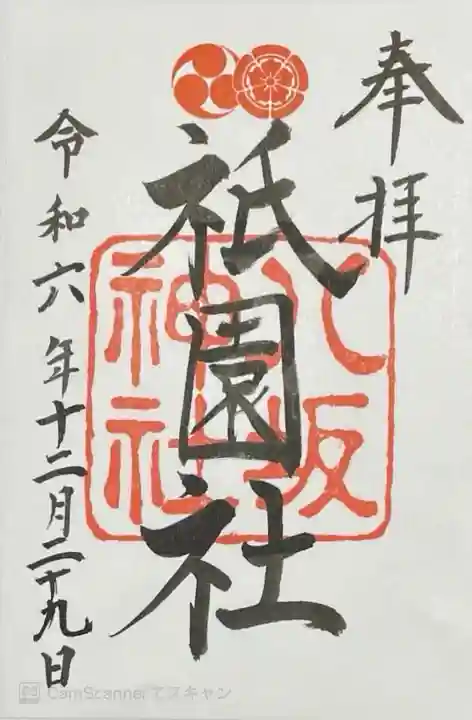 奉拝
祇園社
八坂
神社
令和六年十二月二十九日
CamScannerでスキャン